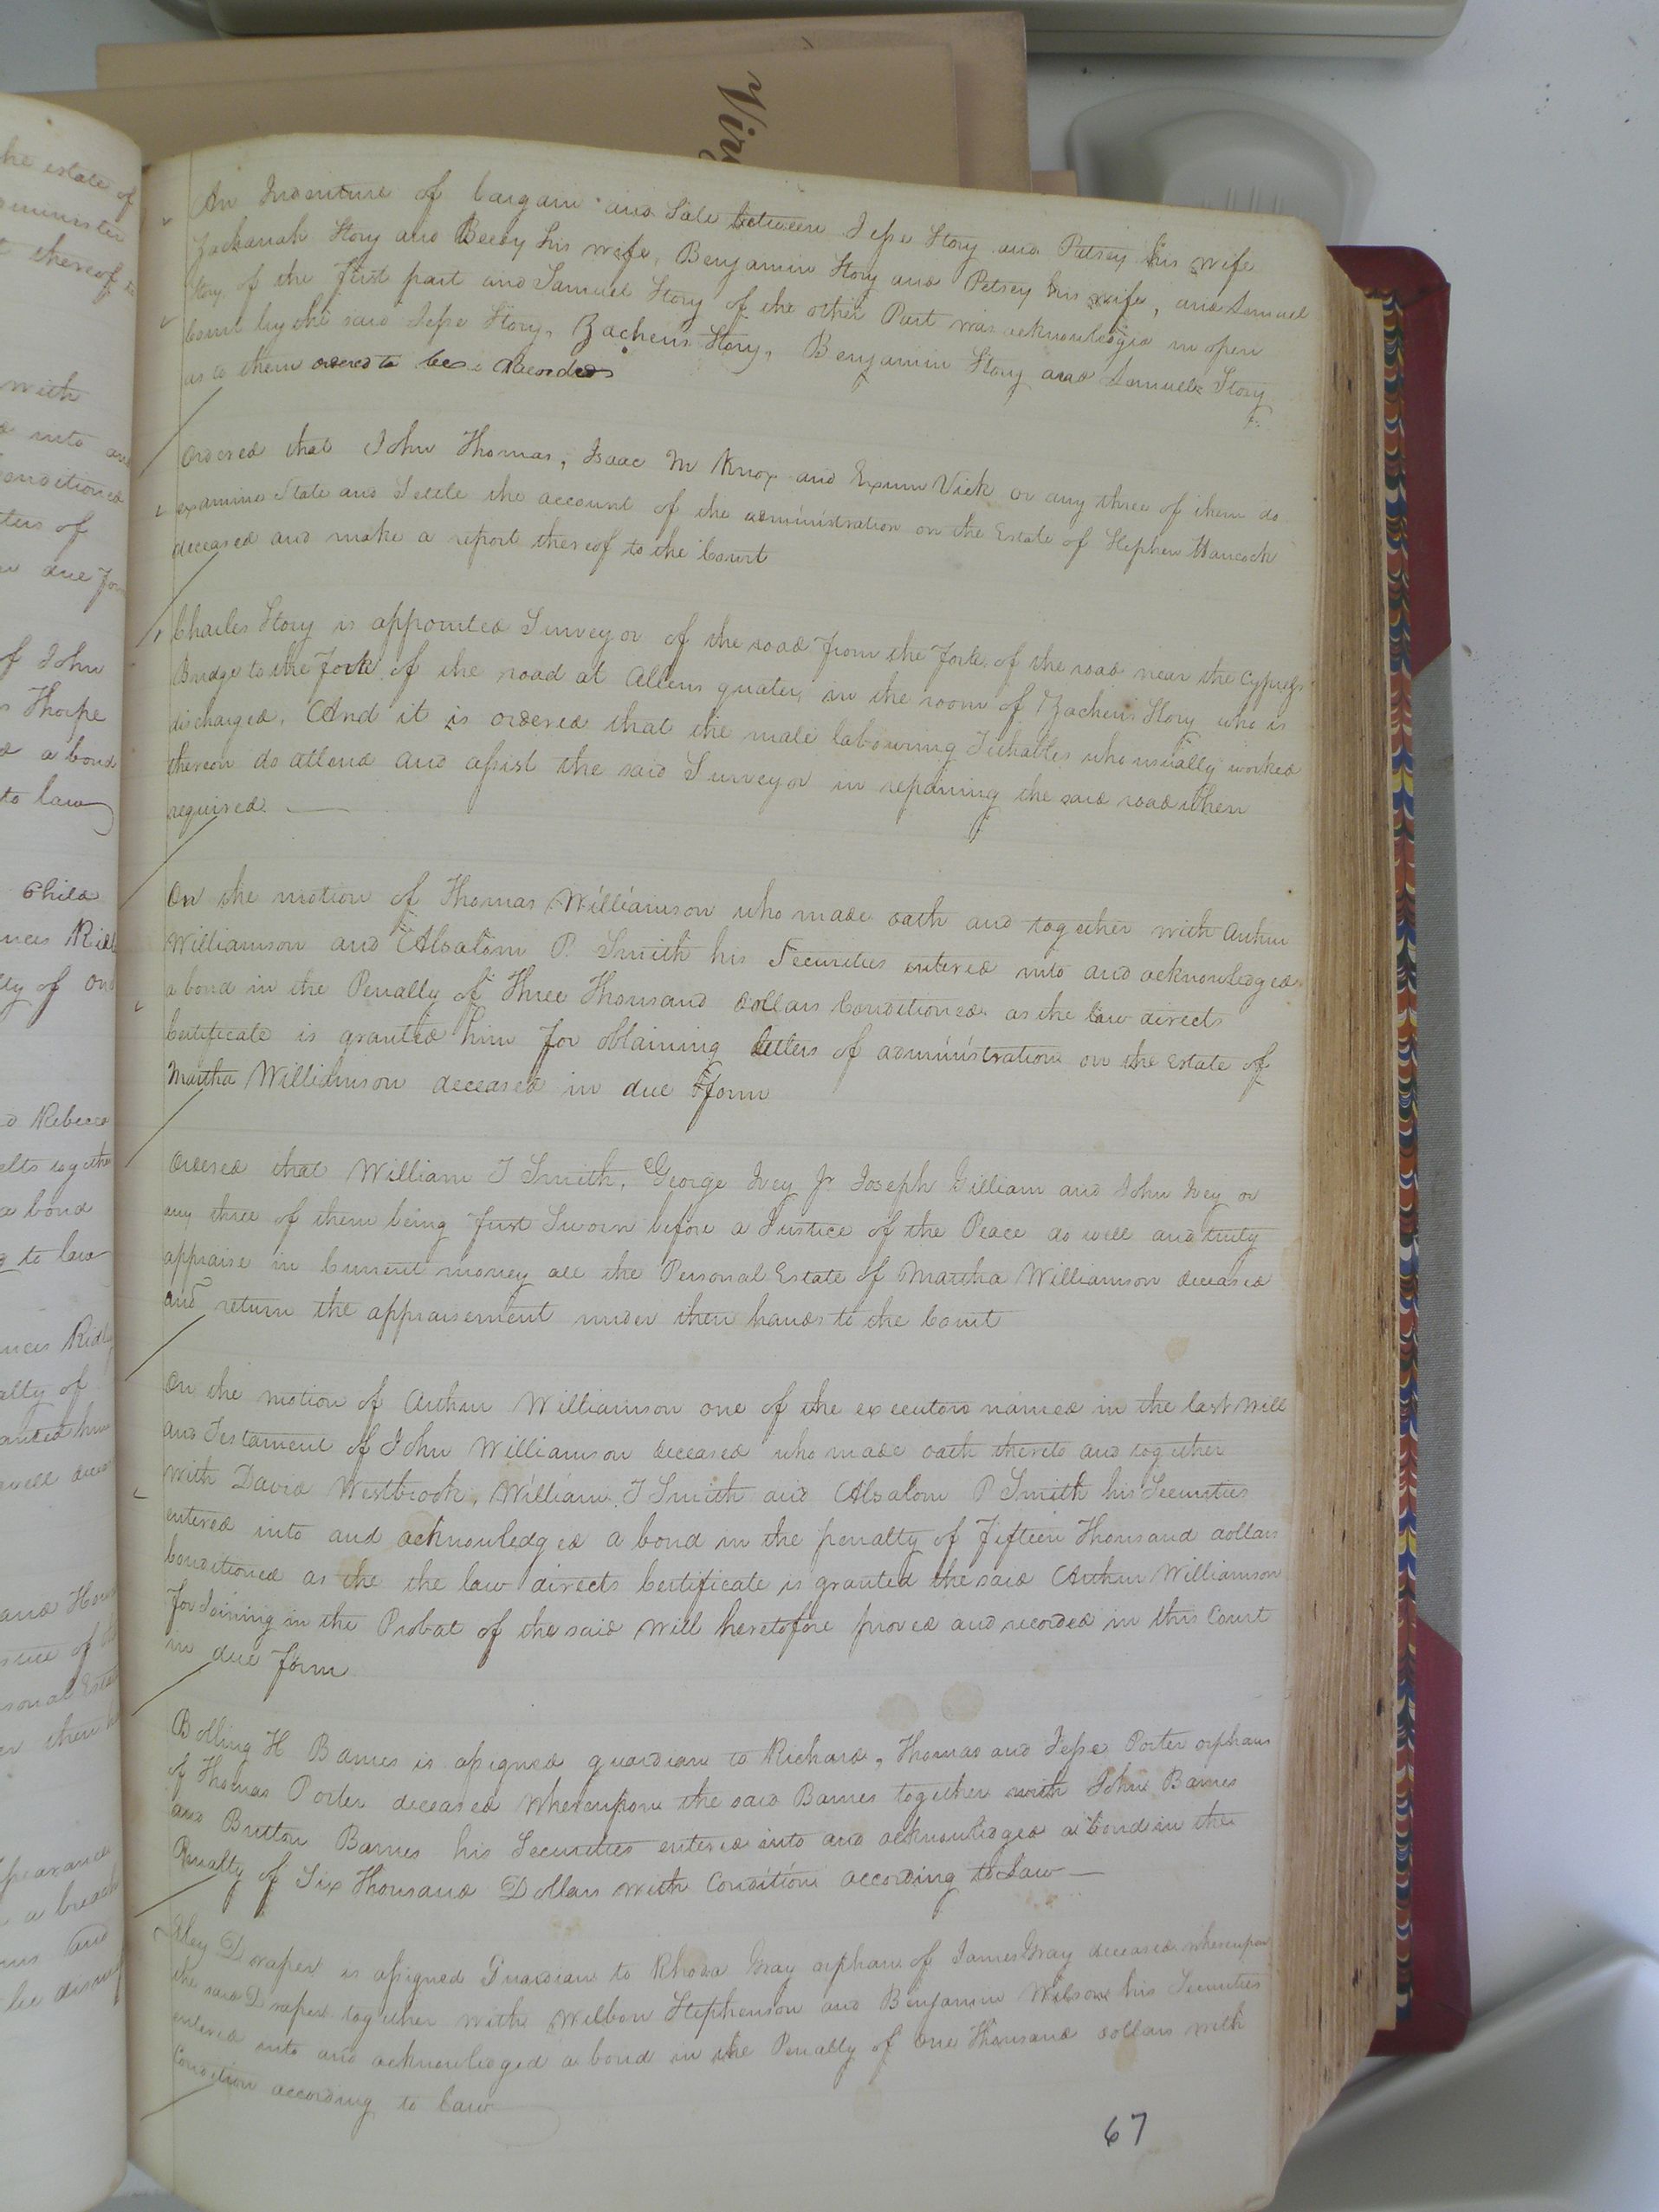 Vir
An Indenture of bargain and Sale between Jesse Story and Patsey his wife
Zachariah Story and Beedy his wife, Benjamin Story and Petsey his wife, and Samuel
Story of the first part and Samuel Story of the other Part was acknowledged in open
Court by the said Jesse Story, Zacheus Story, Benjamin Story and Samuel Story
as to them ordered to be Recorded
Ordered that John Thomas, Isaac M Knox and Exum Vick or any three of them do
examine State and Settle the account of the administration on the Estate of Stephen Hancock
deceased and make a report thereof to the Court
Charles Story is appointed Surveyor of the road from the fork of the road near the Cypress
Bridge to the fork of the road at Allens quater, in the room of Zacheus Story who is
discharged. And it is ordered that the male labouring Tithables who usually worked
thereon do attend and assist the said Surveyor in repairing the said road when
required
On the motion of Thomas Williamson who made oath and together with Arthur
Williamson and Absalom P. Smith his Securities entered into and acknowledged
a bond in the Penalty of Three Thousand dollars Conditioned as the law directs
Certificate is granted him for obtaining letters of administration on the Estate of
Martha Williamson deceased in due fform
Ordered that William T Smith, George Ivey Jr Joseph Gilliam and John Ivey or
any three of them being first Sworn before a Justice of the Peace do well and truly
appraise in Current money all the Personal Estate of Martha Williamson deceased
and return the appraisement under their hands to the Court
On the motion of Arthur Williamson one of the executors named in the last Will
and Testament of John Williamson deceased who made oath thereto and together
with David Westbrook, William T Smith and Absalom P Smith his Securities
entered into and acknowledged a bond in the penalty of fifteen Thousand dollars
Conditioned as the the law directs Certificate is granted the said Arthur Williamson
for Joining in the Probat of the said Will heretofore proved and recorded in this Court
in due form
Bolling H Barnes is assigned guardian to Richard, Thomas and Jesse Porter orphans
of Thomas Porter deceased whereupon the said Barnes together with John Barnes
and Britton Barnes his Securities entered into and acknowledged a bond in the
Penalty of Six Thousand Dollars with Condition according to Law
Eley Draper is assigned Guardian to Rhoda Gray orphan of James Gray deceased whereupon
the said Draper together with Wilbon Stephenson and Benjamin Wilson his Securities
entered into and acknowledged a bond in the Penalty of One Thousand dollars with
Condition according to Law
67